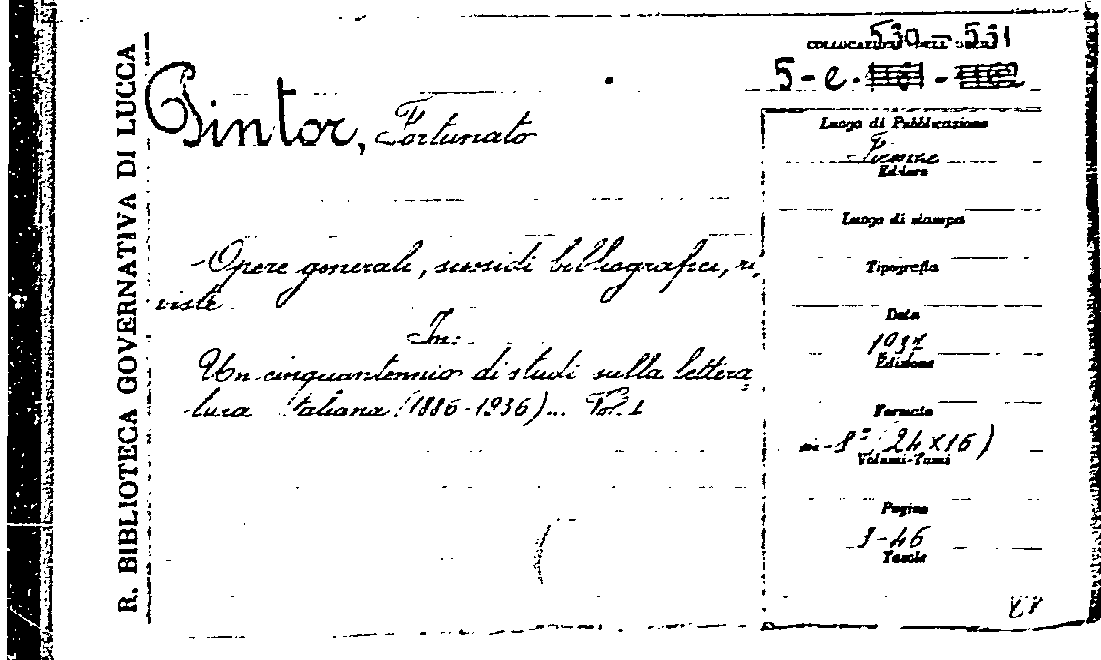 R. BIBLIOTECA GOVERNATIVA DI LUCCA
COLLOCAZIONE DELL'OPERA
530-531
5-e.
Pintor, Fortunato
Opere generali, sussidi bibliografici, ri,
viste
In:
Un cinquantennio di studi sulla lettera,
tura italiana (1886-1936)... Vol. I
Luogo di Pubblicazione
Firenze
Editore
Luogo di stampa
Tipografia
Data
1937
Edizione
Formato
in-8° (24x16)
Volumi-Tomi
Pagine
3-46
Tavole